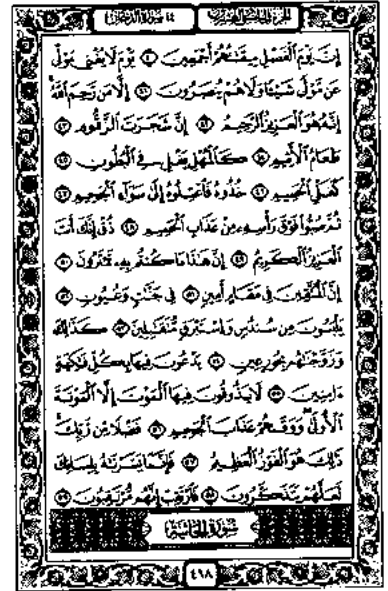 الجزء الخامس والعشرون ٤٤ سورة الدخان
إِنَّ يَوْمَ الْفَصْلِ مِيقَاتُهُمْ أَجْمَعِينَ ۝٤٠ يَوْمَ لَا يُغْنِي مَوْلًى
عَن مَّوْلًى شَيْئًا وَلَا هُمْ يُنصَرُونَ ۝٤١ إِلَّا مَن رَّحِمَ اللَّهُ
إِنَّهُ هُوَ الْعَزِيزُ الرَّحِيمُ ۝٤٢ إِنَّ شَجَرَتَ الزَّقُّومِ ۝٤٣
طَعَامُ الْأَثِيمِ ۝٤٤ كَالْمُهْلِ يَغْلِي فِي الْبُطُونِ ۝٤٥
كَغَلْيِ الْحَمِيمِ ۝٤٦ خُذُوهُ فَاعْتِلُوهُ إِلَىٰ سَوَاءِ الْجَحِيمِ ۝٤٧
ثُمَّ صُبُّوا فَوْقَ رَأْسِهِ مِنْ عَذَابِ الْحَمِيمِ ۝٤٨ ذُقْ إِنَّكَ أَنتَ
الْعَزِيزُ الْكَرِيمُ ۝٤٩ إِنَّ هَٰذَا مَا كُنتُم بِهِ تَمْتَرُونَ ۝٥٠
إِنَّ الْمُتَّقِينَ فِي مَقَامٍ أَمِينٍ ۝٥١ فِي جَنَّاتٍ وَعُيُونٍ ۝٥٢
يَلْبَسُونَ مِن سُندُسٍ وَإِسْتَبْرَقٍ مُّتَقَابِلِينَ ۝٥٣ كَذَٰلِكَ
وَزَوَّجْنَاهُم بِحُورٍ عِينٍ ۝٥٤ يَدْعُونَ فِيهَا بِكُلِّ فَاكِهَةٍ
ءَامِنِينَ ۝٥٥ لَا يَذُوقُونَ فِيهَا الْمَوْتَ إِلَّا الْمَوْتَةَ
الْأُولَىٰ وَوَقَاهُمْ عَذَابَ الْجَحِيمِ ۝٥٦ فَضْلًا مِّن رَّبِّكَ
ذَٰلِكَ هُوَ الْفَوْزُ الْعَظِيمُ ۝٥٧ فَإِنَّمَا يَسَّرْنَاهُ بِلِسَانِكَ
لَعَلَّهُمْ يَتَذَكَّرُونَ ۝٥٨ فَارْتَقِبْ إِنَّهُم مُّرْتَقِبُونَ ۝٥٩
سورة الجاثية
٤٩٨